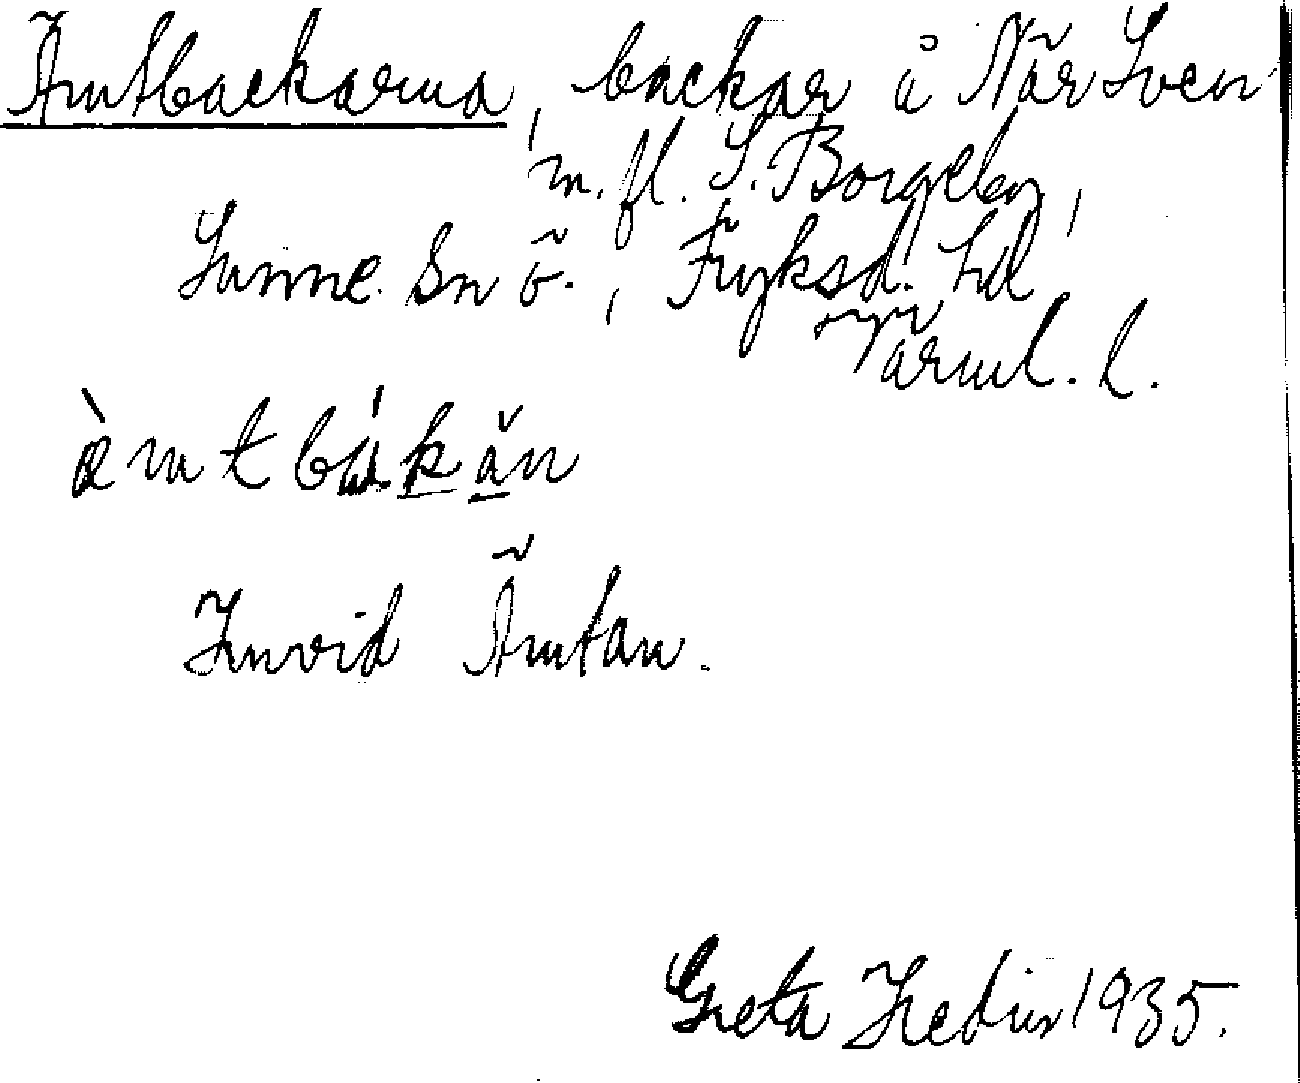 Ämtbackarna, backar å När Sven
m. fl. S. Borgeby,
Sunne sn ö., Fryksd. hd
Värml. l.
æ̀mtbákăn
Invid Ämtan.
Greta Hedin 1935.